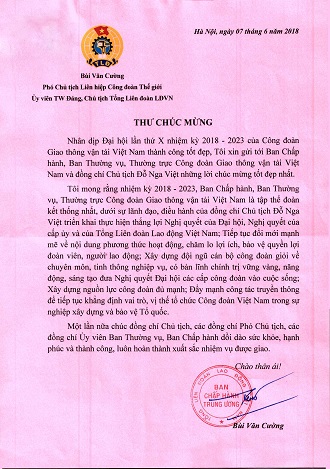 Hà Nội, ngày 07 tháng 6 năm 2018
TLĐ
Bùi Văn Cường
Phó Chủ tịch Liên hiệp Công đoàn Thế giới
Ủy viên TW Đảng, Chủ tịch Tổng Liên đoàn LĐVN
THƯ CHÚC MỪNG
Nhân dịp Đại hội lần thứ X nhiệm kỳ 2018 - 2023 của Công đoàn
Giao thông vận tải Việt Nam thành công tốt đẹp, Tôi xin gửi tới Ban Chấp
hành, Ban Thường vụ, Thường trực Công đoàn Giao thông vận tải Việt
Nam và đồng chí Chủ tịch Đỗ Nga Việt những lời chúc mừng tốt đẹp nhất.
Tôi mong rằng nhiệm kỳ 2018 - 2023, Ban Chấp hành, Ban Thường
vụ, Thường trực Công đoàn Giao thông vận tải Việt Nam là tập thể đoàn
kết thống nhất, dưới sự lãnh đạo, điều hành của đồng chí Chủ tịch Đỗ Nga
Việt triển khai thực hiện thắng lợi Nghị quyết của Đại hội, Nghị quyết của
cấp ủy và của Tổng Liên đoàn Lao động Việt Nam; Tiếp tục đổi mới mạnh
mẽ về nội dung phương thức hoạt động, chăm lo lợi ích, bảo vệ quyền lợi
đoàn viên, người lao động; Xây dựng đội ngũ cán bộ công đoàn giỏi về
chuyên môn, tinh thông nghiệp vụ, có bản lĩnh chính trị vững vàng, năng
động, sáng tạo đưa Nghị quyết Đại hội các cấp công đoàn vào cuộc sống;
Xây dựng nguồn lực công đoàn đủ mạnh; Đẩy mạnh công tác truyền thông
để tiếp tục khẳng định vai trò, vị thế tổ chức Công đoàn Việt Nam trong sự
nghiệp xây dựng và bảo vệ Tổ quốc.
Một lần nữa chúc đồng chí Chủ tịch, các đồng chí Phó Chủ tịch, các
đồng chí Ủy viên Ban Thường vụ, Ban Chấp hành dồi dào sức khỏe, hạnh
phúc và thành công, luôn hoàn thành xuất sắc nhiệm vụ được giao.
Chào thân ái!
BAN
CHẤP HÀNH
TRUNG ƯƠNG
Bùi Văn Cường